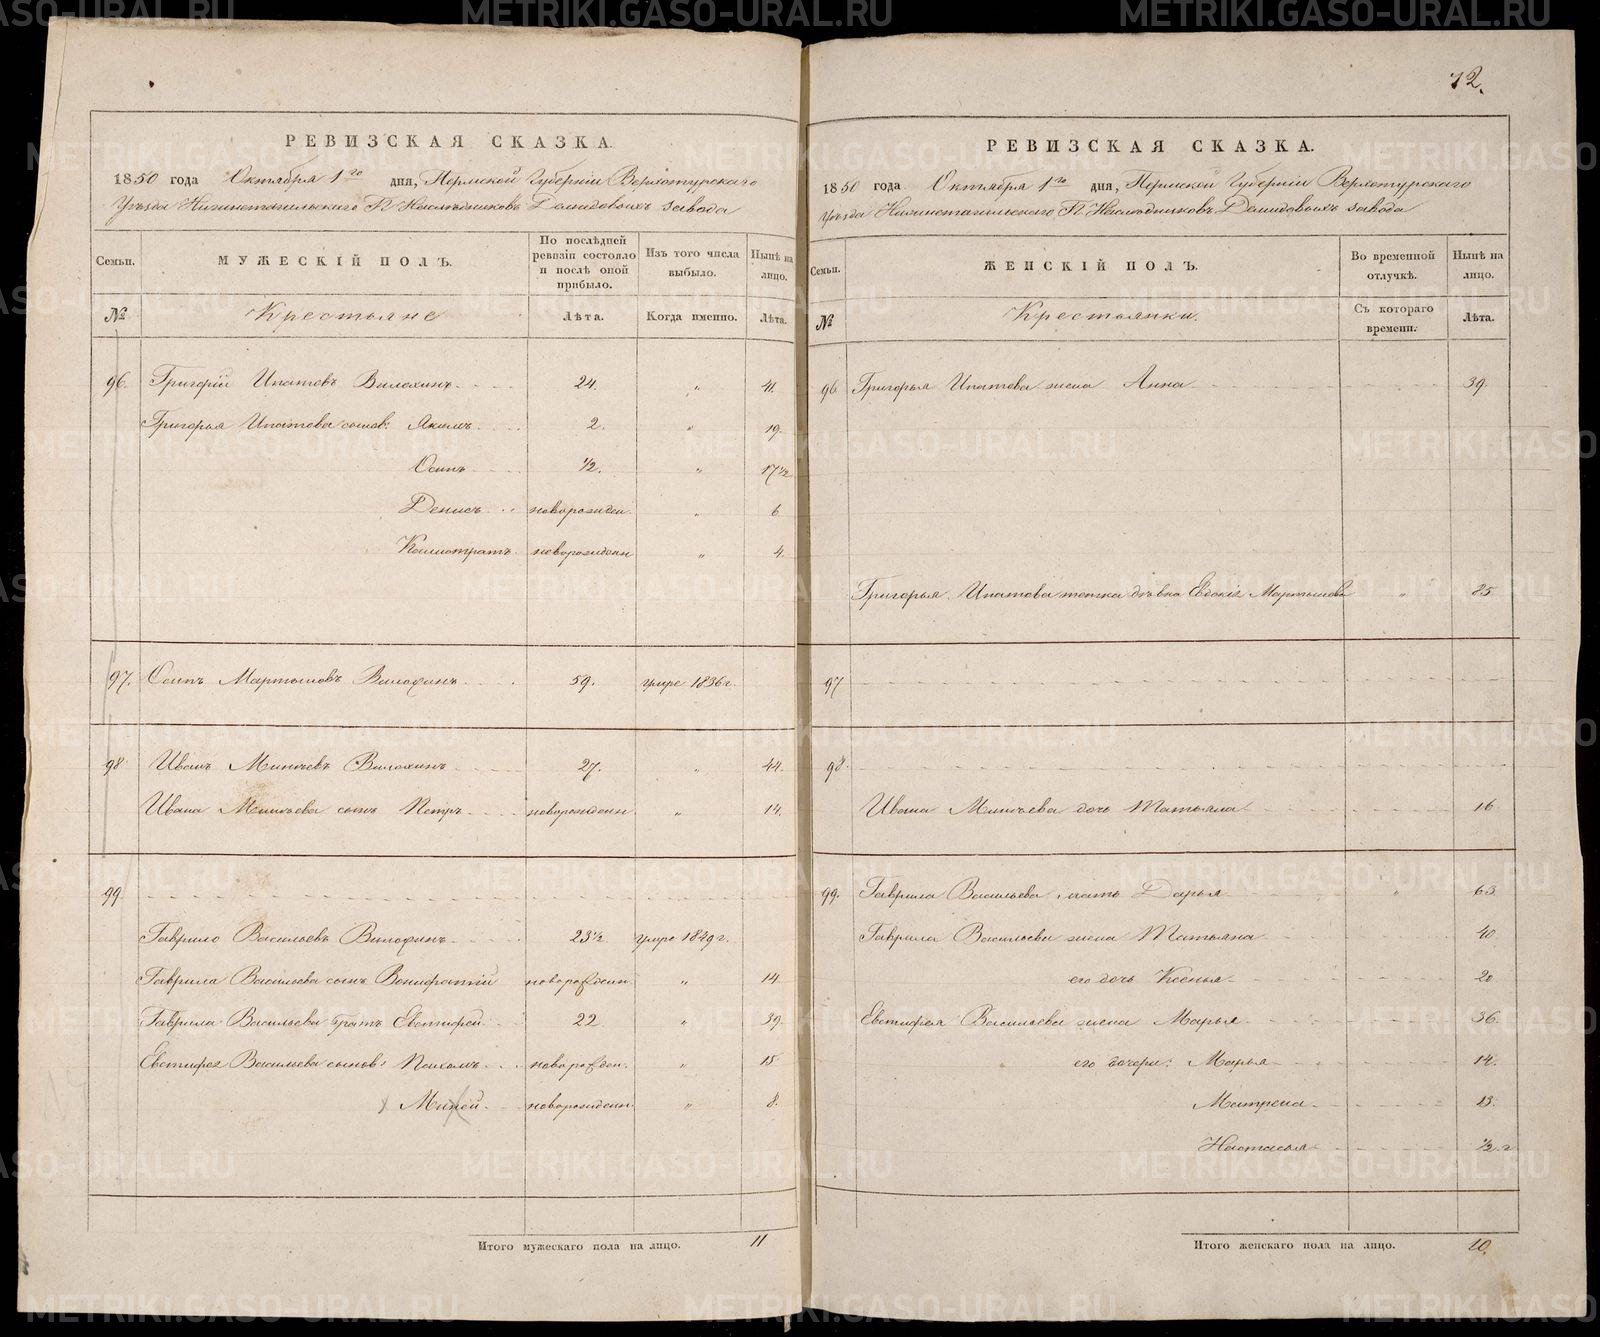 72.
РЕВИЗСКАЯ СКАЗКА.
1850 года Октября 1го дня, Пермской Губерніи Верхотурскаго
Уѣзда Нижнетагильскаго П. Наслѣдниковъ Демидовыхъ завода
Семьи. МУЖЕСКІЙ ПОЛЪ. По послѣдней ревизіи состояло и послѣ оной прибыло. Изъ того числа выбыло. Нынѣ на лицо.
№ Крестьяне Лѣта. Когда именно. Лѣта.
96. Григорій Ипатовъ 24. " 41.
Григорья Ипатова сынов: Якимъ 2. " 19.
Осипъ ½. " 17½
Денисъ новорожден. " 6
Калистратъ новорожденн " 4.
97. Осипъ Мартыновъ 59. умре 1836 г.
98 Иванъ Минѣевъ 27. " 44.
Ивана Минѣева сынъ Петръ новорожденн. " 14.
99
Гаврило Васильевъ 23½ умре 1849 г.
Гаврила Васильева сынъ Вонифатій новорожден. " 14
Гаврила Васильева братъ Евстифей 22 " 39.
Евстифея Васильева сынов: Пахомъ новорожден. " 15
Миней новорожденн. " 8.
Итого мужескаго пола на лицо. 11
РЕВИЗСКАЯ СКАЗКА.
1850 года Октября 1го дня, Пермской Губерніи Верхотурскаго
Уѣзда Нижнетагильскаго П. Наслѣдниковъ Демидовыхъ завода
Семьи. ЖЕНСКІЙ ПОЛЪ. Во временной отлучкѣ. Нынѣ на лицо.
№ Крестьянки. Съ котораго времени. Лѣта.
96 Григорья Ипатова жена Анна 39.
Григорья Ипатова тетка дѣвка Евдокія Мартынова " 85
97
98.
Ивана Минѣева дочь Татьяна 16
99. Гаврила Васильева мать Дарья " 63
Гаврила Васильева жена Татьяна 40
его дочь Ксенья 20
Евстифея Васильева жена Марья 36
его дочери: Марья 14.
Матрена 13.
Настасья ½ г
Итого женскаго пола на лицо. 10.
METRIKI.GASO-URAL.RU